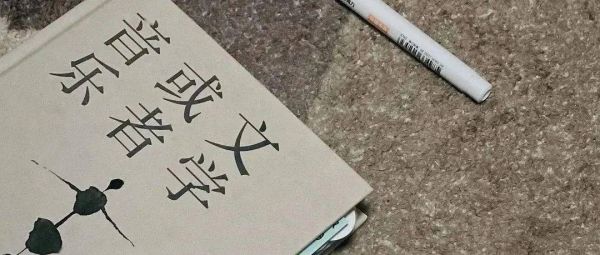 文学
或者
音乐